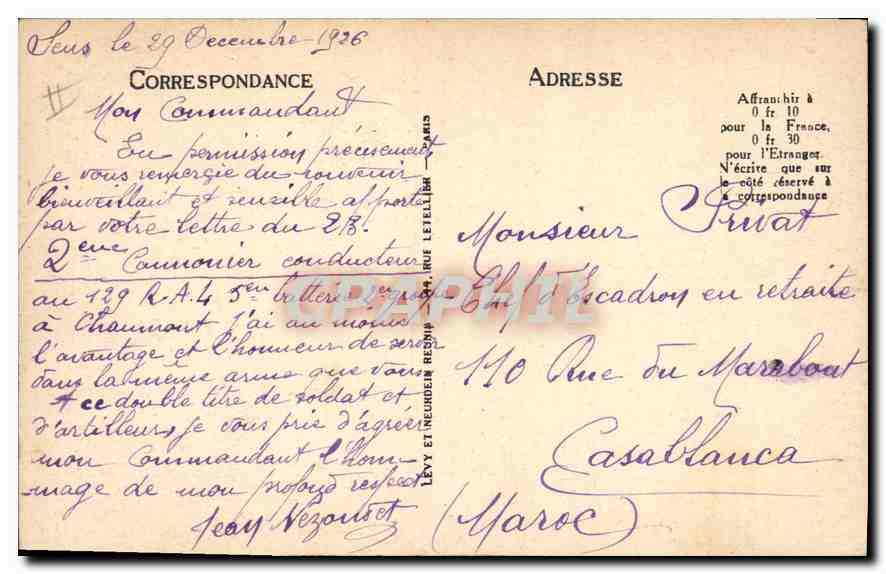 Sens le 29 Decembre 1926
CORRESPONDANCE
Mon Commandant
En permission précisement
je vous remergie du souvenir
bienveillant et sensible apporté
par votre lettre du 23.
2eme Cannonier conducteur
au 129 R.A.L 5en batterie 2en groupe
à Chaumont j'ai au moins
l'avantage et l'honneur de servir
dans la même arme que vous
A ce double titre de soldat et
d'artilleur, je vous prie d'agréer
mon Commandant l'hom-
mage de mon profond respect
Jean
LEVY ET NEURDEIN REUNIS 44, RUE LETELLIER — PARIS
ADRESSE
Affranchir à
0 fr 10
pour la France,
0 fr 30
pour l'Etranger.
N'écrire que sur
le côté réservé à
la correspondance
Monsieur Privat
Chef d'Escadron en retraite
110 Rue du Marabout
Casablanca
(Maroc)
CPAPHIL